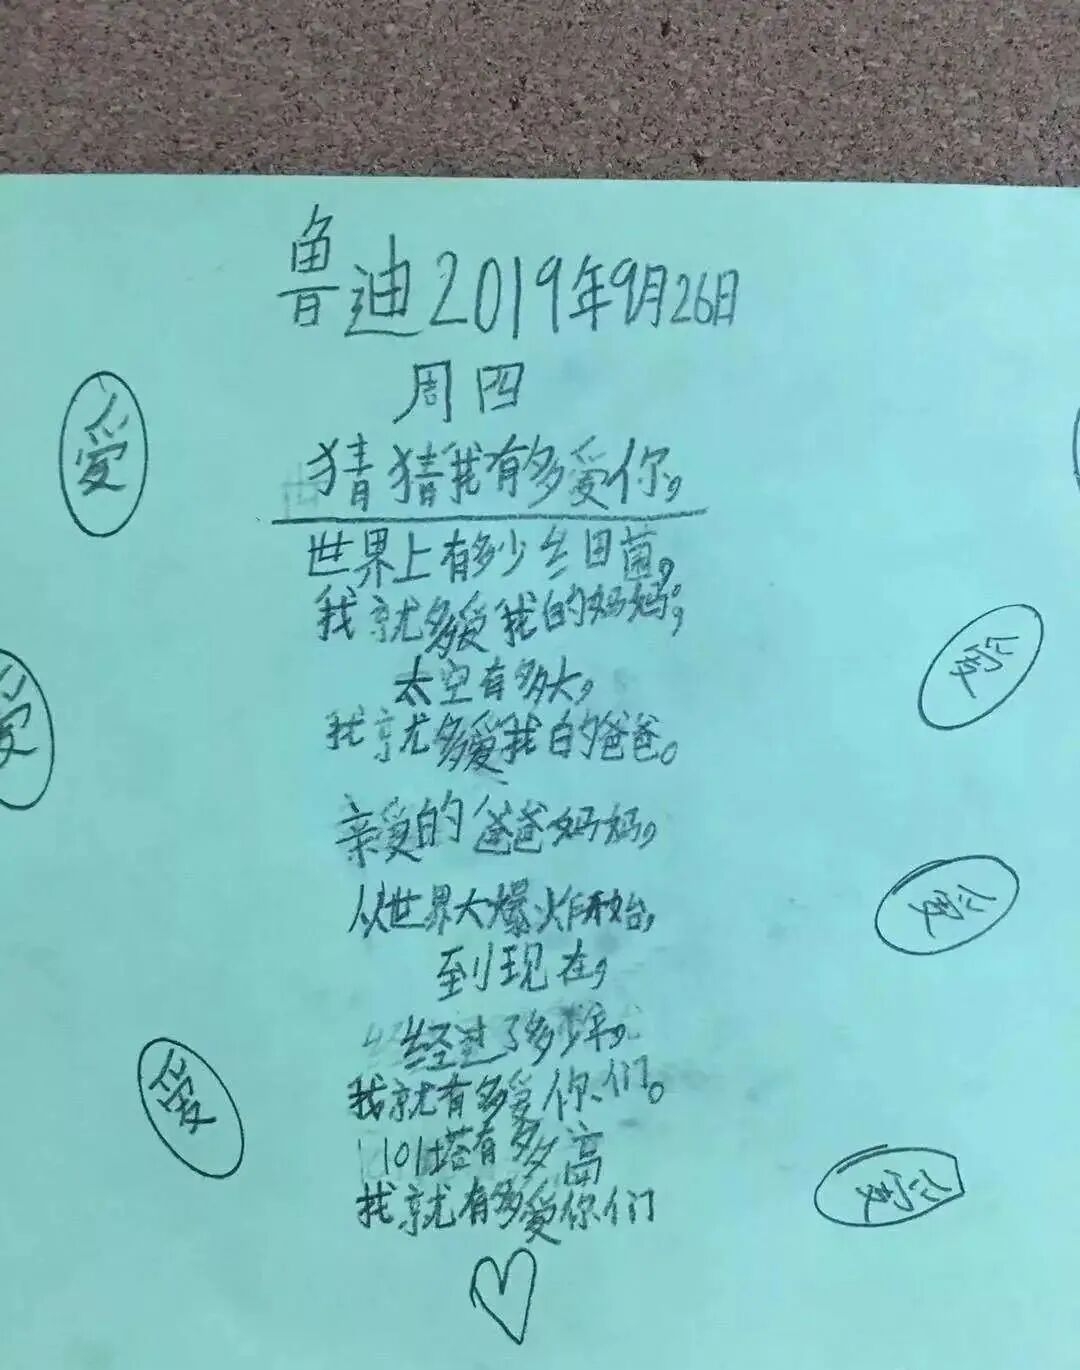 鲁迪2019年9月26日
周四
猜猜我有多爱你,
世界上有多少细菌,
我就多爱我的妈妈;
太空有多大,
我就多爱我的爸爸。
亲爱的爸爸妈妈,
从世界大爆炸开始,
到现在,
经过了多少年,
我就有多爱你们。
101塔有多高
我就有多爱你们
爱
爱
爱
爱
爱
爱